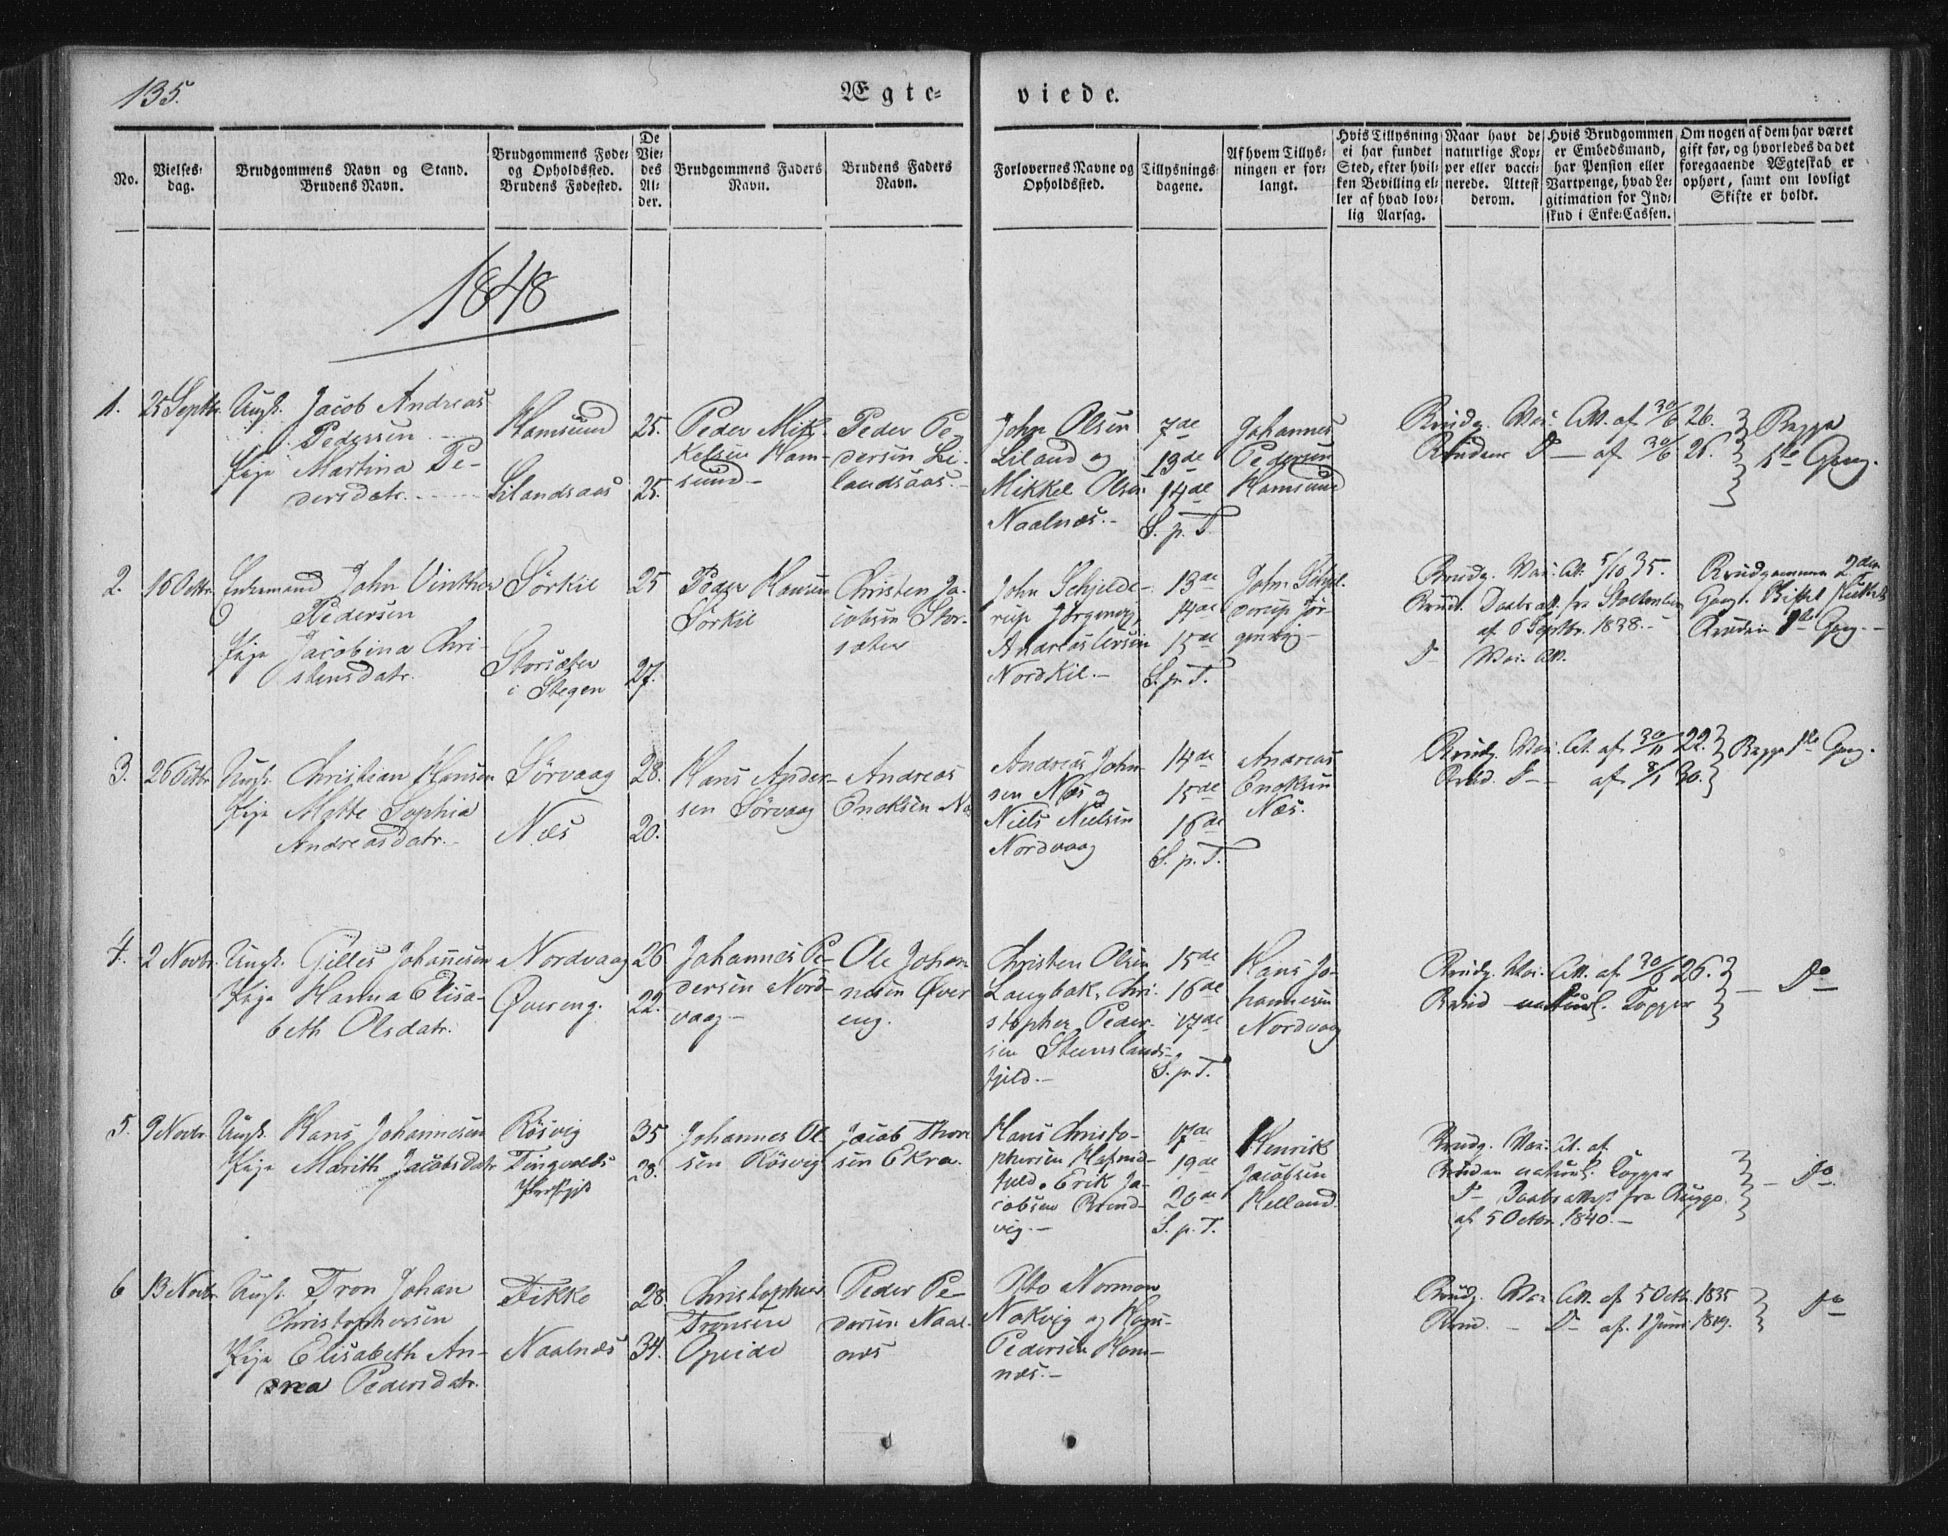 135.
Ægte-
viede.
No.
Vielses-
dag.
Brudgommens Navn og Stand.
Brudens Navn.
Brudgommens Føde-
og Opholdssted.
Brudens Fødested.
De
Vie-
des
Al-
der.
Brudgommens Faders
Navn.
Brudens Faders
Navn.
Forlovernes Navne og
Opholdssted.
Tillysnings-
dagene.
Af hvem Tillys-
ningen er for-
langt.
Hvis Tillysning
ei har fundet
Sted, efter hvil-
ken Bevilling el-
ler af hvad lov-
lig Aarsag.
Naar havt de
naturlige Kop-
per eller vacci-
nerede. Attest
derom.
Hvis Brudgommen
er Embedsmand,
har Pension eller
Vartpenge, hvad Le-
gitimation for Ind-
skud i Enke-Cassen.
Om nogen af dem har været
gift før, og hvorledes da det
foregaaende Ægteskab er
ophørt, samt om lovligt
Skifte er holdt.
1848
1. 25 Septbr.
Ungk. Jacob Andreas
Pedersen
Pige Martina Pe-
dersdatr.
Hamsund
Lilandsaas
25.
25.
Peder Mik-
kelsen Ham-
sund
Peder Pe-
dersen Li-
landsaas.
John Olsen
Liland og
Mikkel Olsen
Naalnæs.
7de
13de
14de
S. p. T.
Johannes
Pedersen
Hamsund
Brudg. Vac. Att. af 30/6 26.
Bruden D af 30/6 26.
Begge
1ste Gang.
2. 16 Octbr.
Enkemand John Vinther
Pedersen
Pige Jacobina Chri-
stensdatr.
Sørkil
Storsæter
i Stegen
25
27.
Peder Hansen
Sørkil
Christen Ja-
cobsen Stor-
sæter
John Schjelde-
rup Jørgensen,
Andreas Iversen
Nordkil.
13de
14de
15de
S. p. T.
John Schjel-
derup Jør-
gensen
Brudg. Vac. At. 5/10 35.
Brud. Daabsatt. fra
af 6 Septbr. 1838.
D Vac. Att.
Brudgommen 2den
Gang.
Bruden 1ste Gang.
3. 26 Octbr.
Ungk. Christian Hansen
Pige Mette Sophia
Andreasdatr.
Sørvaag
Næs
28.
20.
Hans Ander-
sen Sørvaag
Andreas
Enoksen Næs
Andreas John-
sen Næs og
Niels Nielsen
Nordvaag
14de
15de
16de
S. p. T.
Andreas
Enoksen
Næs.
Brudg. Vac. At. af 30/11 22.
Brud. D af 8/1 30.
Begge 1ste Gang.
4. 2 Novbr.
Ungk. Gilles Johannesen
Pige Hanna Elisa-
beth Olsdatr.
Nordvaag
Øvereng.
26
22.
Johannes Pe-
dersen Nord-
vaag
Ole Johan-
nesen Øver-
eng.
Christen Olsen
Langbak, Chri-
stopher Peder-
sen Steenslands-
fjeld.
15de
16de
17de
S. p. T.
Hans Jo-
hannesen
Nordvaag
Brudg. Vac. Att. af 30/6 26.
Brud naturl. Kopper
Do
5. 9 Novbr.
Ungk. Hans Johannesen
Pige Marith Jacobsdatr.
Røsvig
Tingvolds
35
28.
Johannes Ol-
sen Røsvig
Jacob Thor-
sen Ekra.
Hans Christo-
phersen
fjeld. Erik Ja-
cobsen Brend-
vig.
17de
19de
20de
S. p. T.
Henrik
Jacobsen
Helland.
Brudg. Vac. At. af
Bruden naturl. Kopper
D Daabsattest fra
af 5 Octbr. 1840.
Do
6 13 Novbr.
Ungk. Tron Johan
Christophersen
Pige Elisabeth An-
drea Pedersdatr.
Fikke
Naalnæs
28
34.
Christopher
Tronsen
Opeide
Peder Pe-
dersen Naal-
næs
Otto Normon
Nakvig og Hans
Pedersen Ham-
næs.
Brudg. Vac. Att. af 5 Octb. 1835
Brud. D af 1 Juni 1819.
Do